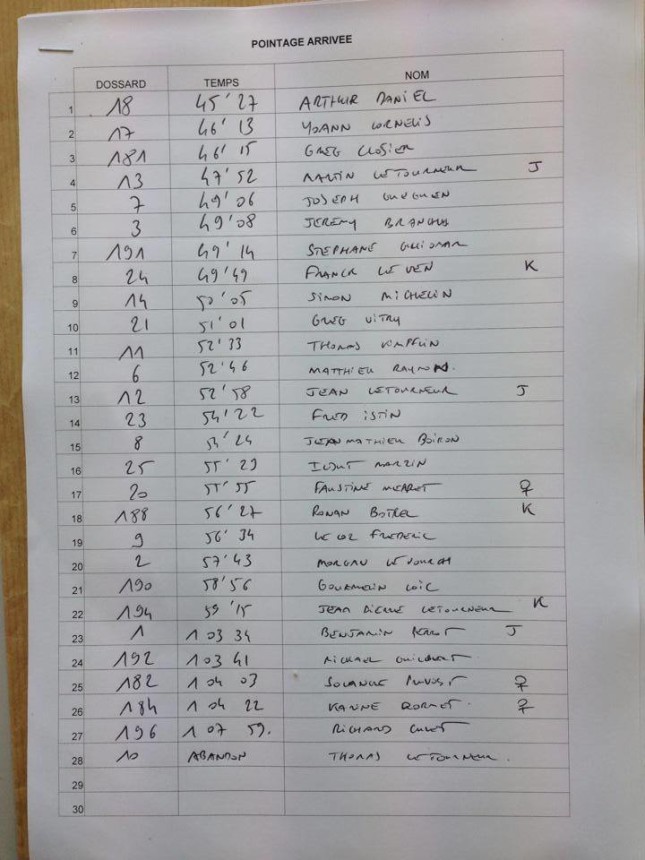 POINTAGE ARRIVEE
DOSSARD TEMPS NOM
1 18 45'27 ARTHUR DANIEL
2 17 46'13 YOANN CORNELIS
3 181 46'15 GREG CLOSIER
4 13 47'52 MARTIN LETOURNEUR J
5 7 49'06 JOSEPH GUEGUEN
6 3 49'08 JEREMY
7 191 49'14 STEPHANE GUIOMAR
8 24 49'49 FRANCK LE VEN K
9 14 50'05 SIMON MICHELIN
10 21 51'01 GREG VITRY
11 11 52'33 THOMAS
12 6 52'46 MATTHIEU RAYMON.
13 12 52'58 JEAN LETOURNEUR J
14 23 54'22 FRED ISTIN
15 8 54'24 JEAN MATHIEU BOIRON
16 25 55'29 MARZIN
17 20 55'55 FAUSTINE MERRET ♀
18 188 56'27 RONAN BOTREL K
19 9 56'34 LE COZ FREDERIC
20 2 57'43 MORGAN
21 190 58'56 GOURMELIN LOIC
22 194 59'15 JEAN PIERRE LETOURNEUR K
23 1 1 03 34 BENJAMIN J
24 192 1 03 41 MICKAEL
25 182 1 04 03 SOLANGE ♀
26 184 1 04 22 ♀
27 196 1 07 59. RICHARD
28 10 ABANDON THOMAS LETOURNEUR.
29
30